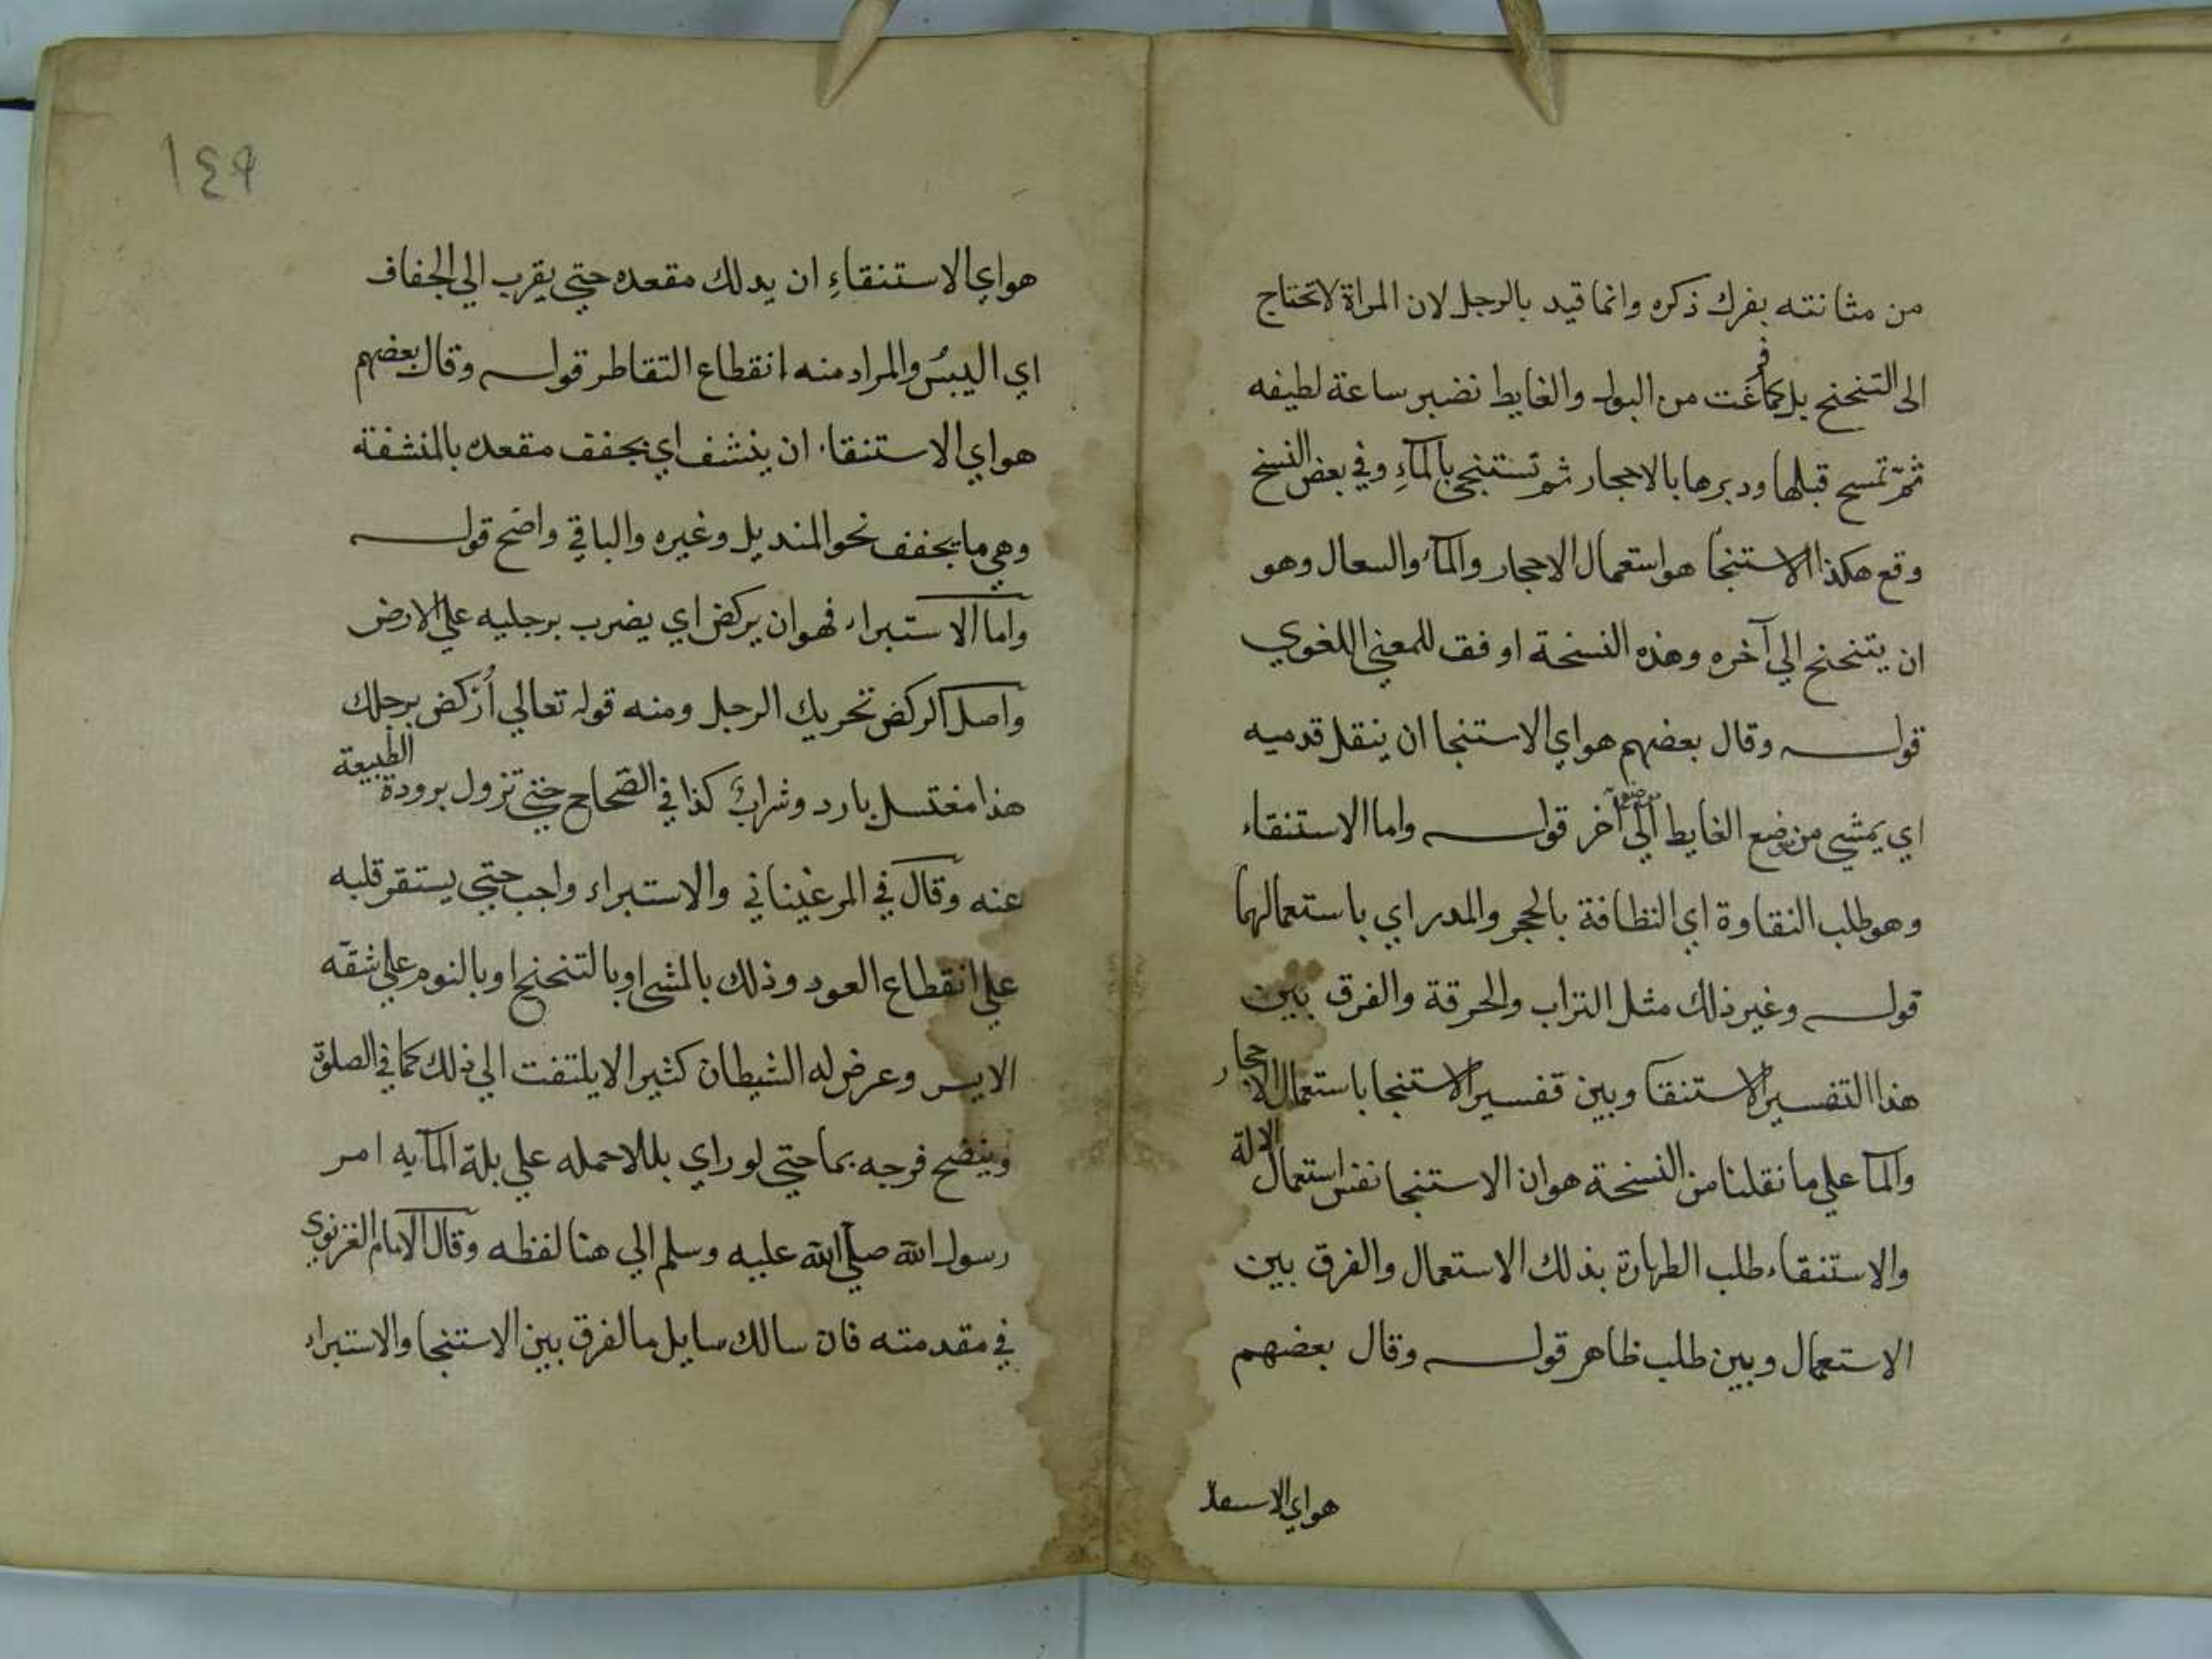 من مثانته بفرك ذكره وانما قيد بالرجل لان المراة لا تحتاج
الى التنحنح بل كما فرغت من البول والغايط تصبر ساعة لطيفه
ثم تمسح قبلها ودبرها بالاحجار ثم تستنجي بالمآءِ وفي بعض النسخ
وقع هكذا الاستنجا هو استعمال الاحجار والمآ والسعال وهو
ان يتنحنح الي آخره وهذه النسخة اوفق للمعني اللغوي
قوله وقال بعضهم هو اي الاستنجا ان ينقل قدميه
اي يمشي من موضع الغايط الي موضع آخر قوله واما الاستنقاء
وهو طلب النقاوة اي النظافة بالحجر والمدر اي باستعمالهما
قوله وغير ذلك مثل التراب والخرقة والفرق بين
هذا التفسير الاستنقا وبين تفسير الاستنجا باستعمال الاحجار
والمآ علي ما نقلنا من النسخة هو ان الاستنجا نفس استعمال الالة
والاستنقاء طلب الطهارة بذلك الاستعمال والفرق بين
الاستعمال وبين طلب ظاهر قوله وقال بعضهم
هو اي الاستنقا
١٤٩
هو اي الاستنقاءِ ان يدلك مقعده حتي يقرب الي الجفاف
اي اليبُس والمراد منه انقطاع التقاطر قوله وقال بعضهم
هو اي الاستنقا ان ينشف اي يجفف مقعده بالمنشفة
وهي ما يجفف نحو المنديل وغيره والباقي واضح قوله
واما الاستبراء فهو ان يركض اي يضرب برجليه علي الارض
واصل الركض تحريك الرجل ومنه قوله تعالي اُركض برجلك
هذا مغتسل بارد وشرابٌ كذا في الصّحاح حتي تزول برودة الطبيعة
عنه وقال في المرغيناني والاستبراء واجب حتي يستقر قلبه
علي انقطاع العود وذلك بالمشي او بالتنحنح او بالنوم علي شقّه
الايسر وعرض له الشيطان كثيرا لا يلتفت الي ذلك كما في الصلوة
وينضح فرجه بما حتي لو راي بللا حمله علي بلة المآ به امر
رسول الله صلي الله عليه وسلم الي هنا لفظه وقال الامام الغزنوي
في مقدمته فان سالك سايل ما الفرق بين الاستنجا والاستبراء